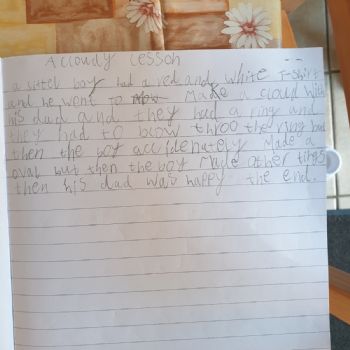 A cloudy Lesson
a littel boy had a red and white T-shirt
and he went to Make a cloud with
his dad and they had a ring and
they had to blow throo the ring but
then the boy accidenately Made a
oval but then the boy Made other tings
then his dad was happy the end.